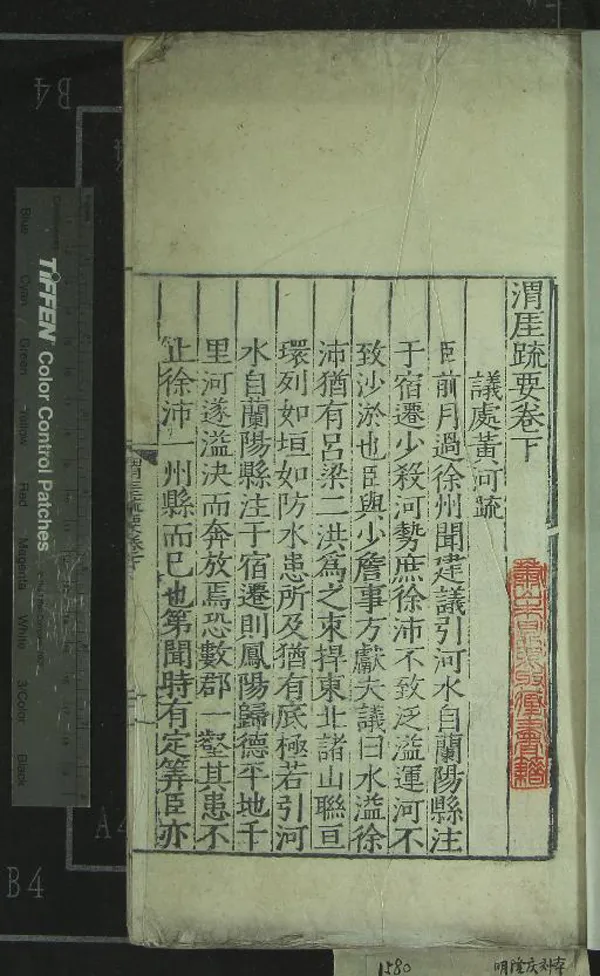 渭厓疏要卷下
議處黃河疏
臣前月過徐州聞建議引河水自蘭陽縣注
于宿遷少殺河勢庶徐沛不致泛溢運河不
致沙淤也臣與少詹事方獻夫議曰水溢徐
沛猶有呂梁二洪為之束捍東北諸山聯亘
環列如垣如防水患所及猶有底極若引河
水自蘭陽縣注于宿遷則鳳陽歸德平地千
里河遂溢決而奔放焉恐數郡一壑其患不
止徐沛一州縣而已也第聞時有定筭臣亦
渭厓疏要卷下
TIFFEN Color Control Patches
Blue Cyan Green Yellow Red Magenta White 3/Color Black
B4
B4
A4
1580
明隆庆刻本